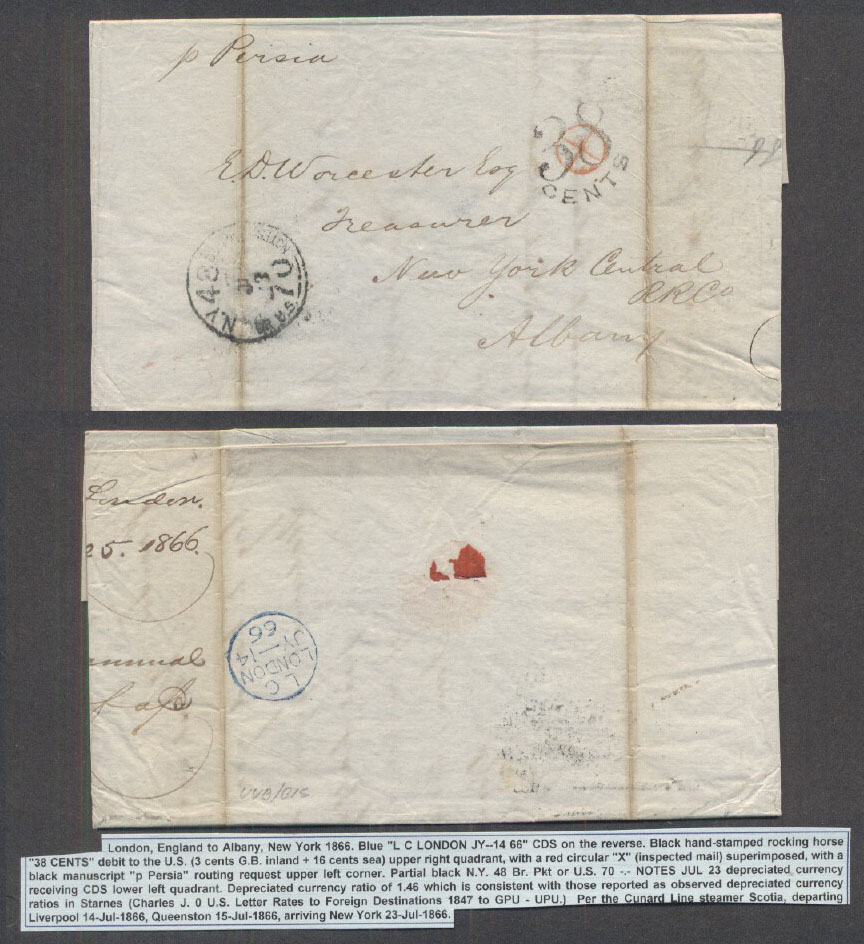 p Persia
38
CENTS
E.D. Worcester Esq
Treasurer
New York Central
RRCo
Albany
N.Y. 48
70
London.
25. 1866.
annual
L C
LONDON
JY 14
66
London, England to Albany, New York 1866. Blue "L C LONDON JY--14 66" CDS on the reverse. Black hand-stamped rocking horse
"38 CENTS" debit to the U.S. (3 cents G.B. inland + 16 cents sea) upper right quadrant, with a red circular "X" (inspected mail) superimposed, with a
black manuscript "p Persia" routing request upper left corner. Partial black N.Y. 48 Br. Pkt or U.S. 70 -.- NOTES JUL 23 depreciated currency
receiving CDS lower left quadrant. Depreciated currency ratio of 1.46 which is consistent with those reported as observed depreciated currency
ratios in Starnes (Charles J. 0 U.S. Letter Rates to Foreign Destinations 1847 to GPU - UPU.) Per the Cunard Line steamer Scotia, departing
Liverpool 14-Jul-1866, Queenston 15-Jul-1866, arriving New York 23-Jul-1866.